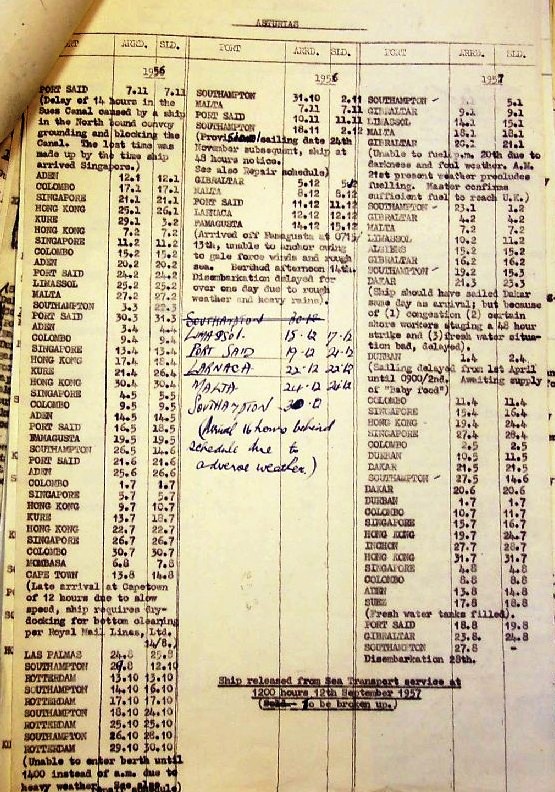 ASTURIAS
PORT ARRD. SLD.
1956
PORT SAID 7.11 7.11
(Delay of 14 hours in the
Suez Canal caused by a ship
in the North bound convoy
grounding and blocking the
Canal. The lost time was
made up by the time ship
arrived Singapore.)
ADEN 12.1 12.1
COLOMBO 17.1 17.1
SINGAPORE 21.1 21.1
HONG KONG 25.1 26.1
KURE 29.1 3.2
HONG KONG 7.2 7.2
SINGAPORE 11.2 11.2
COLOMBO 15.2 15.2
ADEN 20.2 20.2
PORT SAID 24.2 24.2
LIMASSOL 25.2 25.2
MALTA 27.2 27.2
SOUTHAMPTON 3.3 22.3
PORT SAID 30.3 31.3
ADEN 3.4 4.4
COLOMBO 9.4 9.4
SINGAPORE 13.4 13.4
HONG KONG 17.4 18.4
KURE 21.4 26.4
HONG KONG 30.4 30.4
SINGAPORE 4.5 5.5
COLOMBO 9.5 9.5
ADEN 14.5 14.5
PORT SAID 16.5 18.5
FAMAGUSTA 19.5 19.5
SOUTHAMPTON 26.5 14.6
PORT SAID 21.6 21.6
ADEN 25.6 26.6
COLOMBO 1.7 1.7
SINGAPORE 5.7 5.7
HONG KONG 9.7 10.7
KURE 13.7 18.7
HONG KONG 22.7 22.7
SINGAPORE 26.7 26.7
COLOMBO 30.7 30.7
MOMBASA 6.8 7.8
CAPE TOWN 13.8 14.8
(Late arrival at Capetown
of 12 hours due to slow
speed, ship requires dry-
docking for bottom cleaning
per Royal Mail Lines, Ltd.
14/8.)
LAS PALMAS 24.8 25.8
SOUTHAMPTON 29.8 12.10
ROTTERDAM 13.10 13.10
SOUTHAMPTON 14.10 16.10
ROTTERDAM 17.10 17.10
SOUTHAMPTON 18.10 24.10
ROTTERDAM 25.10 25.10
SOUTHAMPTON 26.10 28.10
ROTTERDAM 29.10 30.10
(Unable to enter berth until
1400 instead of a.m. due to
heavy weather. See also
PORT ARRD. SLD.
1956
SOUTHAMPTON 31.10 2.11
MALTA 7.11 7.11
PORT SAID 10.11 11.11
SOUTHAMPTON 18.11 2.12
(Provisional sailing date 24th
November subsequent, ship at
48 hours notice.
See also Repair schedule)
GIBRALTAR 5.12 5.12
MALTA 8.12 8.12
PORT SAID 11.12 11.12
LARNACA 12.12 12.12
FAMAGUSTA 14.12 15.12
(Arrived off Famagusta at 0715/
13th, unable to anchor owing
to gale force winds and rough
sea. Berthed afternoon 14th.
Disembarkation delayed for
over one day due to rough
weather and heavy rains)
SOUTHAMPTON
LIMASSOL 15-12 17-12
PORT SAID 19-12 21-12
LARNACA 22-12 22-12
MALTA 24-12 26-12
SOUTHAMPTON 30-12
(Arrival 16 hours behind
schedule due to
adverse weather.)
PORT ARRD. SLD.
1957
SOUTHAMPTON 5.1
GIBRALTAR 9.1 9.1
LIMASSOL 14.1 15.1
MALTA 18.1 18.1
GIBRALTAR 20.1 21.1
(Unable to fuel p.m. 20th due to
darkness and foul weather. A.M.
21st present weather precludes
fuelling. Master confirms
sufficient fuel to reach U.K.)
SOUTHAMPTON 23.1 1.2
GIBRALTAR 4.2 4.2
MALTA 7.2 7.2
LIMASSOL 10.2 11.2
15.2 11.2
GIBRALTAR 16.2 16.2
SOUTHAMPTON 19.2 15.3
DAKAR 21.3 23.3
(Ship should have sailed Dakar
same day as arrival; but because
of (1) congestion (2) certain
shore workers staging a 48 hour
strike and (3) fresh water situa-
tion bad, delayed).
DURBAN 1.4 2.4
(Sailing delayed from 1st April
until 0900/2nd. Awaiting supply
of "Baby food")
COLOMBO 11.4 11.4
SINGAPORE 15.4 16.4
HONG KONG 19.4 24.4
SINGAPORE 27.4 28.4
COLOMBO 2.5 2.5
DURBAN 10.5 11.5
DAKAR 21.5 21.5
SOUTHAMPTON 27.5 14.6
DAKAR 20.6 20.6
DURBAN 1.7 1.7
COLOMBO 10.7 11.7
SINGAPORE 15.7 16.7
HONG KONG 19.7 24.7
INCHON 27.7 28.7
HONG KONG 31.7 31.7
SINGAPORE 4.8 4.8
COLOMBO 8.8 8.8
ADEN 13.8 14.8
SUEZ 17.8 18.8
(Fresh water tanks filled).
PORT SAID 18.8 19.8
GIBRALTAR 23.8. 24.8
SOUTHAMPTON 27.8 -
Disembarkation 28th.
Ship released from Sea Transport service at
1200 hours 12th September 1957
(Sold - To be broken up.)